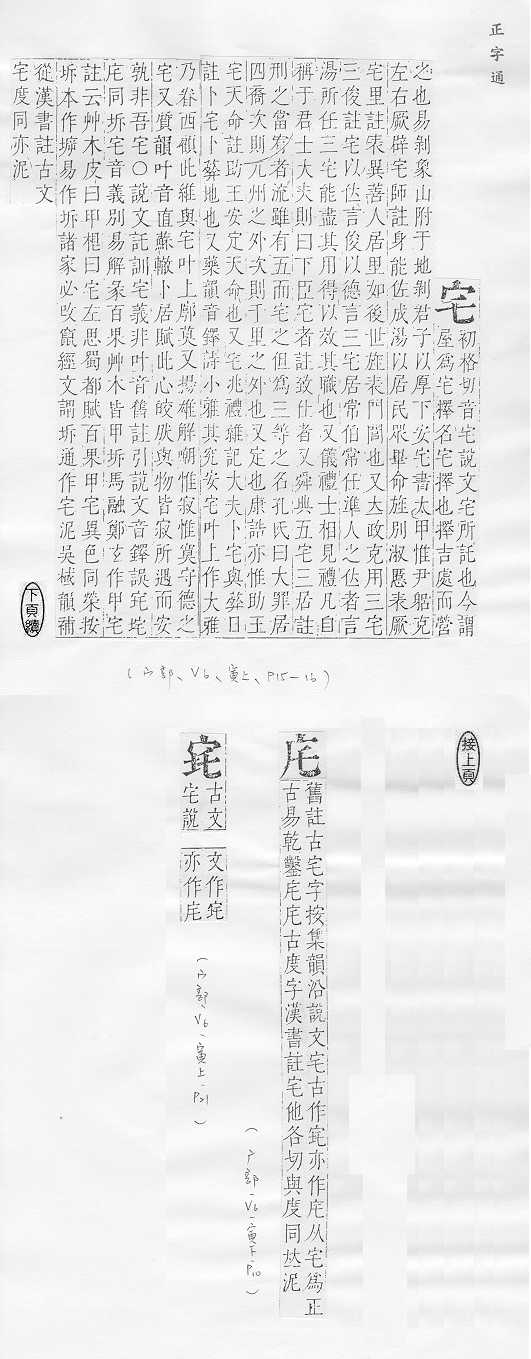 正字通
宅
初格切音宅說文宅所託也今謂
屋爲宅擇名宅擇也擇吉處而營
之也易剝象山附于地剝君子以厚下安宅書太甲惟尹躬克
左右厥辟宅師註身能佐成湯以居民眾畢命旌別淑慝表厥
宅里註表異善人居里如後世旌表門閭也又大政克用三宅
三俊註宅以位言俊以德言三宅居常伯常任準人之位者言
湯所任三宅能盡其用得以效其職也又儀禮士相見禮凡自
稱于君士大夫則曰下臣宅者註致仕者又舜典五宅三居註
刑之當宥者流雖有五而宅之但爲三等之名孔氏曰大罪居
四裔次則九州之外次則千里之外也又定也康誥亦惟助王
宅天命註助王安定天命也又宅兆禮雜記大夫卜宅與葬日
註卜宅卜葬地也又藥韻音鐸詩小雅其究安宅叶上作大雅
乃眷西顧此維與宅叶上廓莫又揚雄解嘲惟寂惟寞守德之
宅又質韻叶音直蘇轍卜居賦此心皎肰與物皆寂所遇而安
孰非吾宅〇說文託訓宅義非叶音舊註引說文音鐸誤宅㡯
㡯同坼宅音義別易解彖百果艸木皆甲坼馬融鄭玄作甲宅
註云艸木皮曰甲根曰宅左思蜀都賦百果甲宅異色同榮按
坼本作㙸易作坼諸家必攺竄經文謂坼通作宅泥吳棫韻補
從漢書註古文
宅度同亦泥
下頁續
(宀部、V6、寅上、P15-16)
接上頁
㡯
舊註古宅字按集韻沿說文宅古作㡯亦作㡯从宅爲正
古易乾鑿㡯㡯古度字漢書註宅他各切與度同𠀤泥
(广部、V6、寅下、P10)
㡯
古文
宅說
文作㡯
亦作㡯
(宀部、V6、寅上、P21)